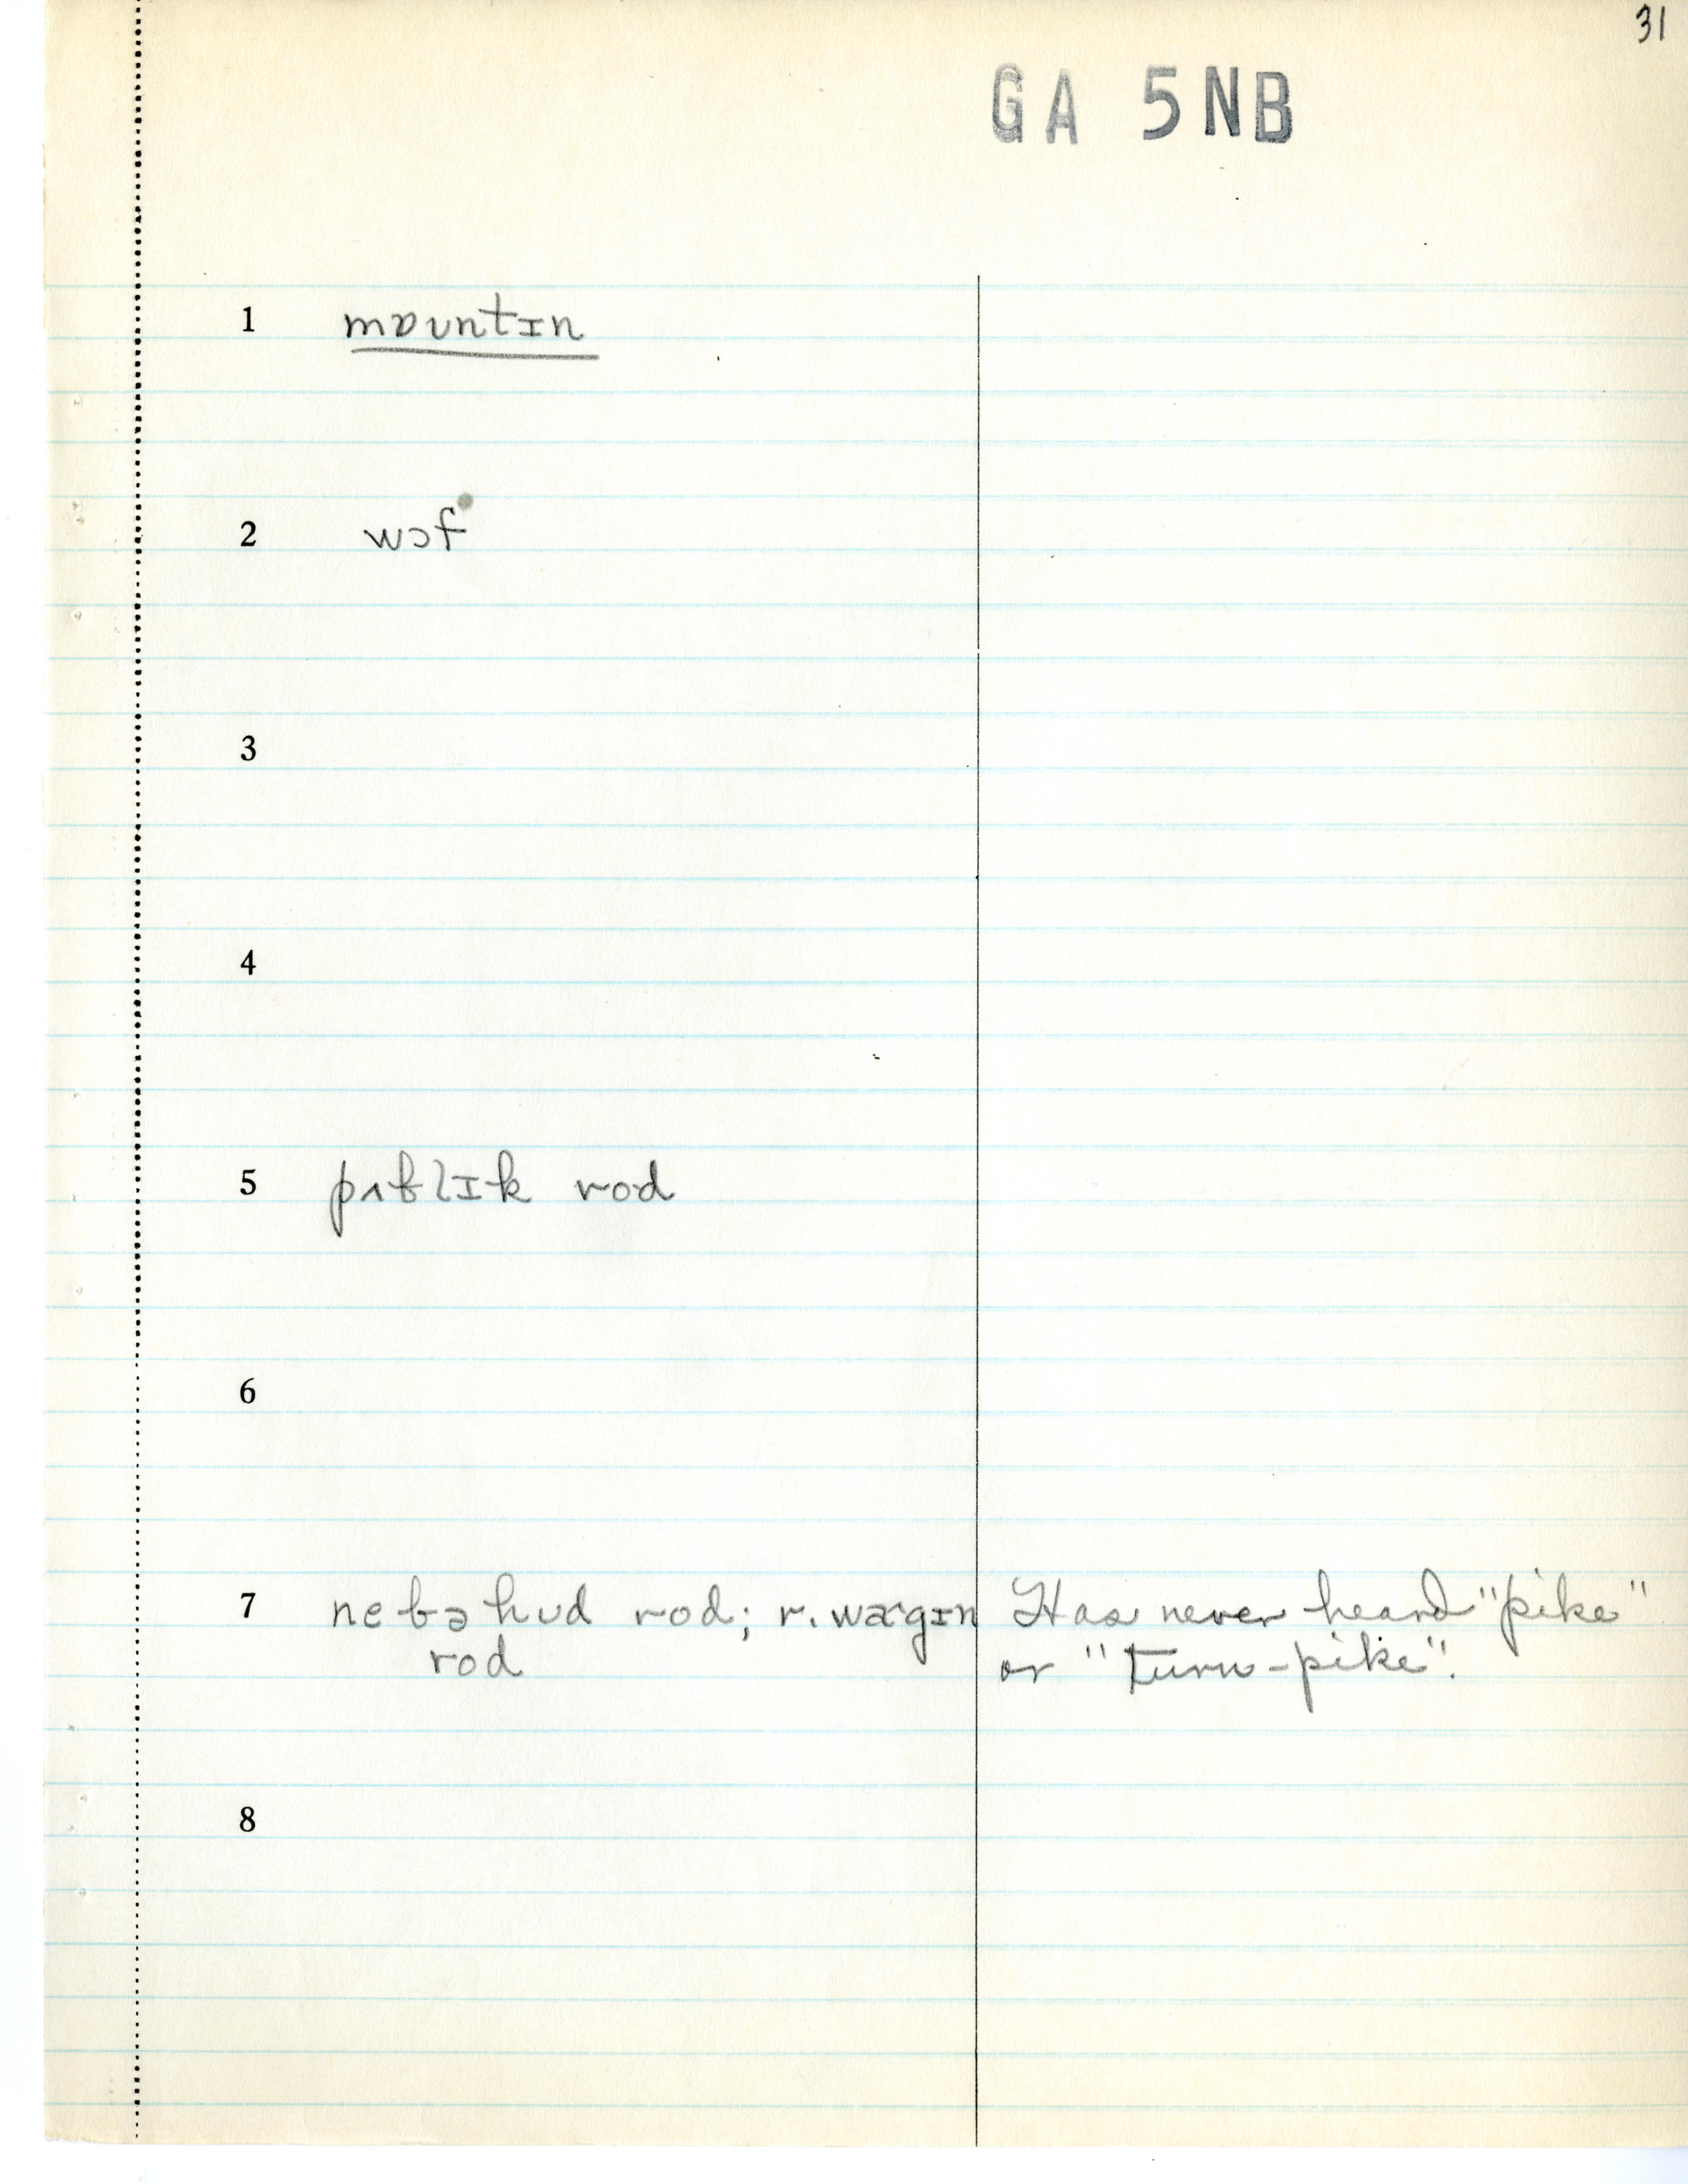 31
GA 5NB
1 mɒʊntɪn
2 wɔf
3
4
5 pʌblɪk rod
6
7 nebəhʊd rod; r. wægɪn Has never heard "pike"
rod or "turn-pike".
8